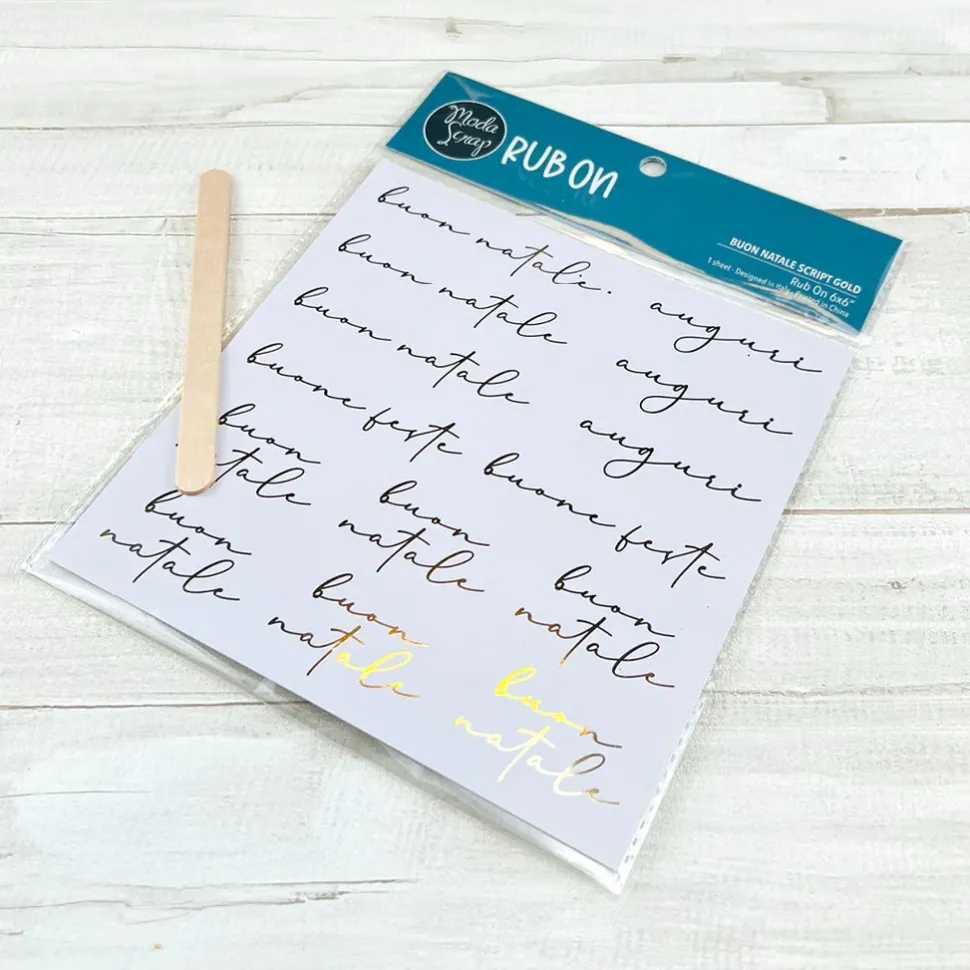 Moda
Scrap
RUB ON
BUON NATALE SCRIPT GOLD
Rub On 6x6"
1 sheet · Designed in Italy · Printed in China
buon natale
auguri
buon natale
auguri
buon natale
auguri
buone feste
buone feste
buon
natale
buon
natale
buon
natale
buon
natale
buon
natale
buon
natale